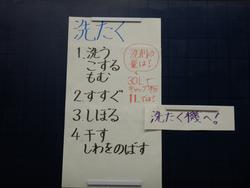 洗たく
1.洗う
こする
もむ
2すすぐ
3しぼる
4干す
しわをのばす
洗剤の
量は?
30Lで
キャップ1杯
1Lでは?
洗たく機へ!